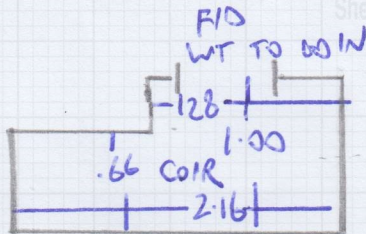 F/D
WT TO DO IN
1.28
1.00
.66 COIR
2.16